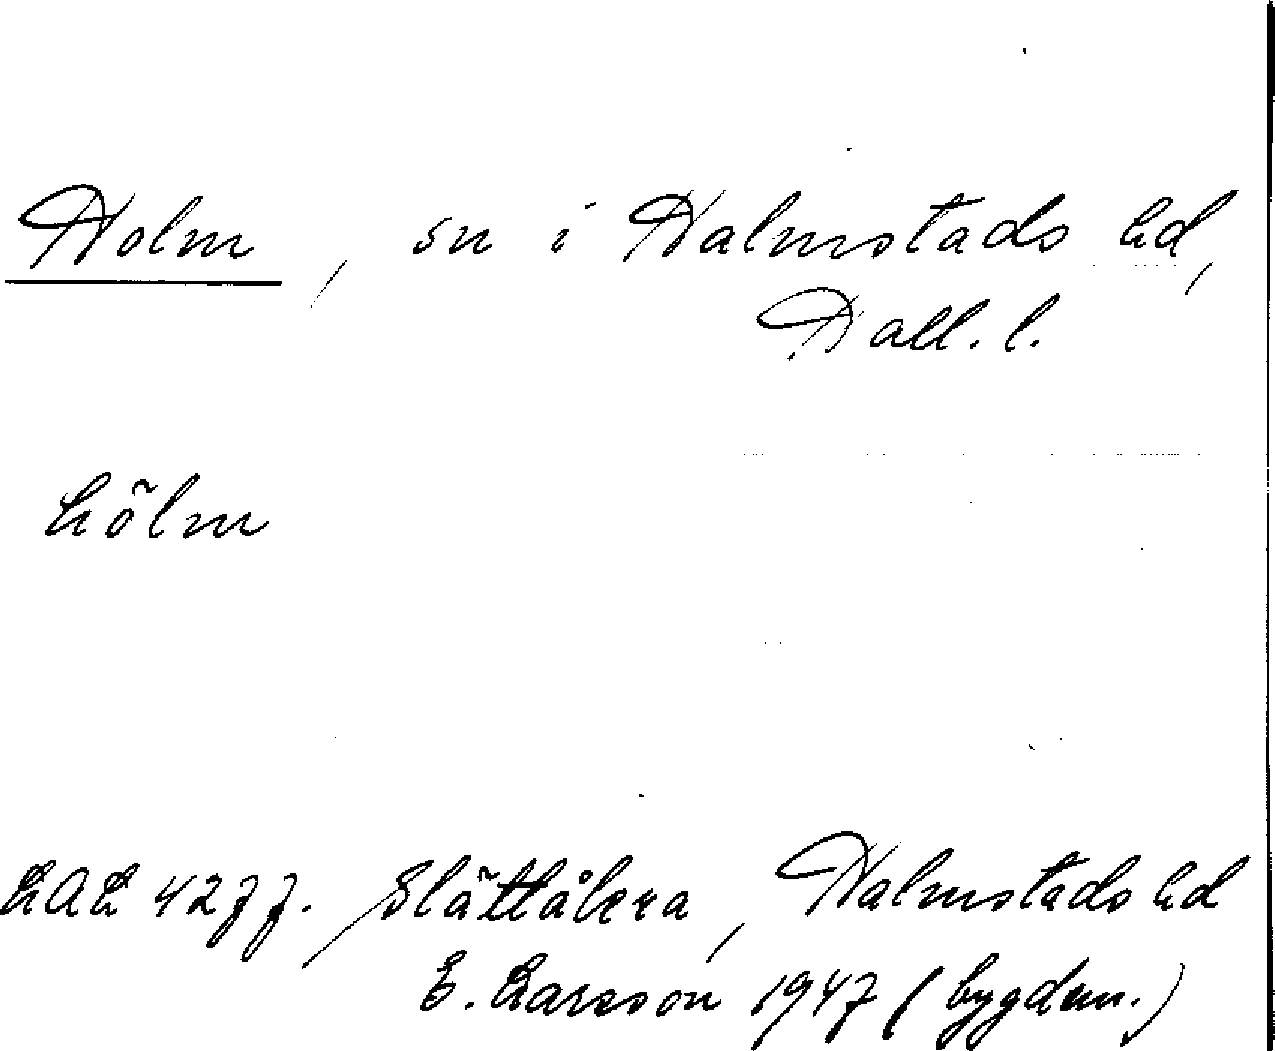 Holm, sn i Halmstads hd,
Hall. l.
hõlm
LAL 4277. Slättåkra, Halmstads hd
E. Larsson 1947 (bygdem.)